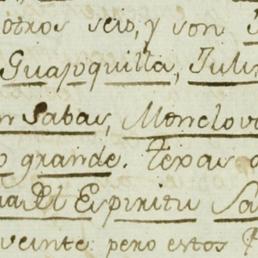 otros seis, y son
Guajoquilla, Juli
n Sabas, Monclova
o grande. Texas
Del Espiritu Sa
veinte: pero estos P